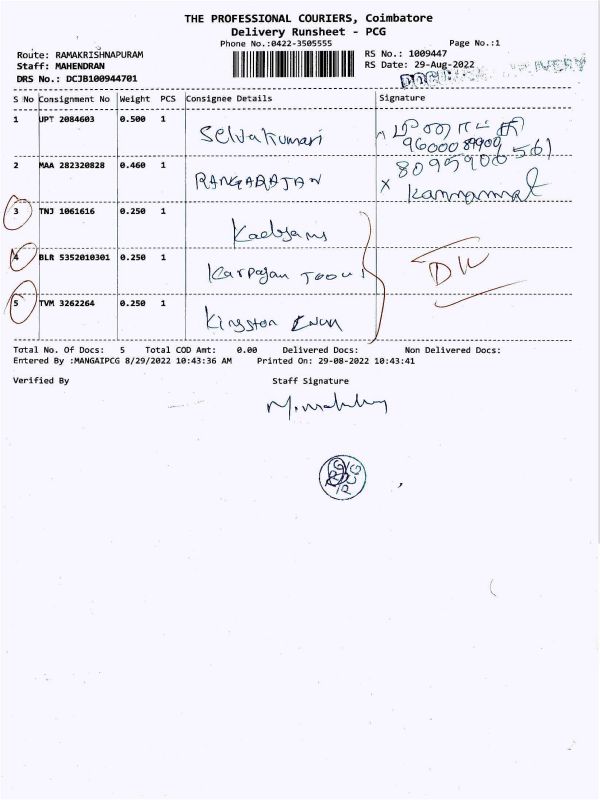 THE PROFESSIONAL COURIERS, Coimbatore
Delivery Runsheet - PCG
Phone No.:0422-3505555 Page No.:1
Route: RAMAKRISHNAPURAM RS No.: 1009447
Staff: MAHENDRAN RS Date: 29-Aug-2022
DRS No.: DCJB100944701
S No Consignment No Weight PCS Consignee Details Signature
1 UPT 2084603 0.500 1 Selvakumari மீனாட்சி
9600089900
2 MAA 282320828 0.460 1 RANGARAJAN 8095900561
x Kannammal
3 TNJ 1061616 0.250 1
4 BLR 5352010301 0.250 1 Karpagam
5 TVM 3262264 0.250 1 Kingston
Total No. Of Docs: 5 Total COD Amt: 0.00 Delivered Docs: Non Delivered Docs:
Entered By :MANGAIPCG 8/29/2022 10:43:36 AM Printed On: 29-08-2022 10:43:41
Verified By Staff Signature